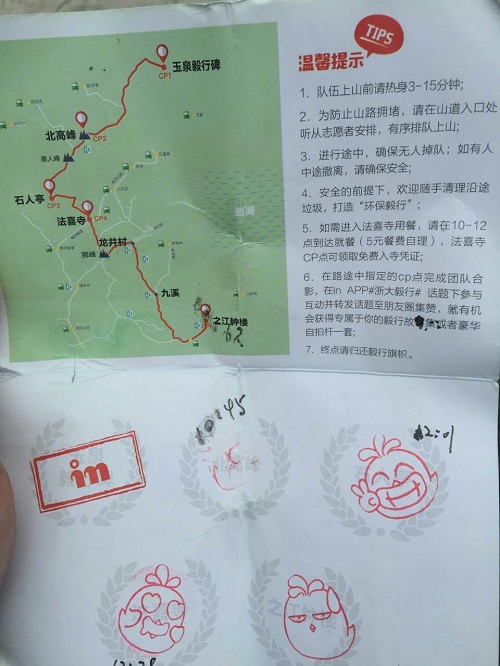 TIPS
温馨提示
玉泉毅行碑
CP1
北高峰
CP2
美人峰
石人亭
CP3
法喜寺
CP4
龙井村
狮峰
九溪
之江钟楼
西湖
1. 队伍上山前请热身3-15分钟;
2. 为防止山路拥堵，请在山道入口处
听从志愿者安排，有序排队上山;
3. 进行途中，确保无人掉队；如有人
中途撤离，请确保安全;
4. 安全的前提下，欢迎随手清理沿途
垃圾，打造“环保毅行”;
5. 如需进入法喜寺用餐，请在10-12
点到达就餐（5元餐费自理），法喜寺
CP点可领取免费入寺凭证;
6. 在路途中指定的cp点完成团队合
影，在in APP#浙大毅行# 话题下参与
互动并转发话题至朋友圈集赞，就有机
会获得专属于你的毅行故事集或者豪华
自拍杆一套;
7. 终点请归还毅行旗帜。
in
10:45
12:01